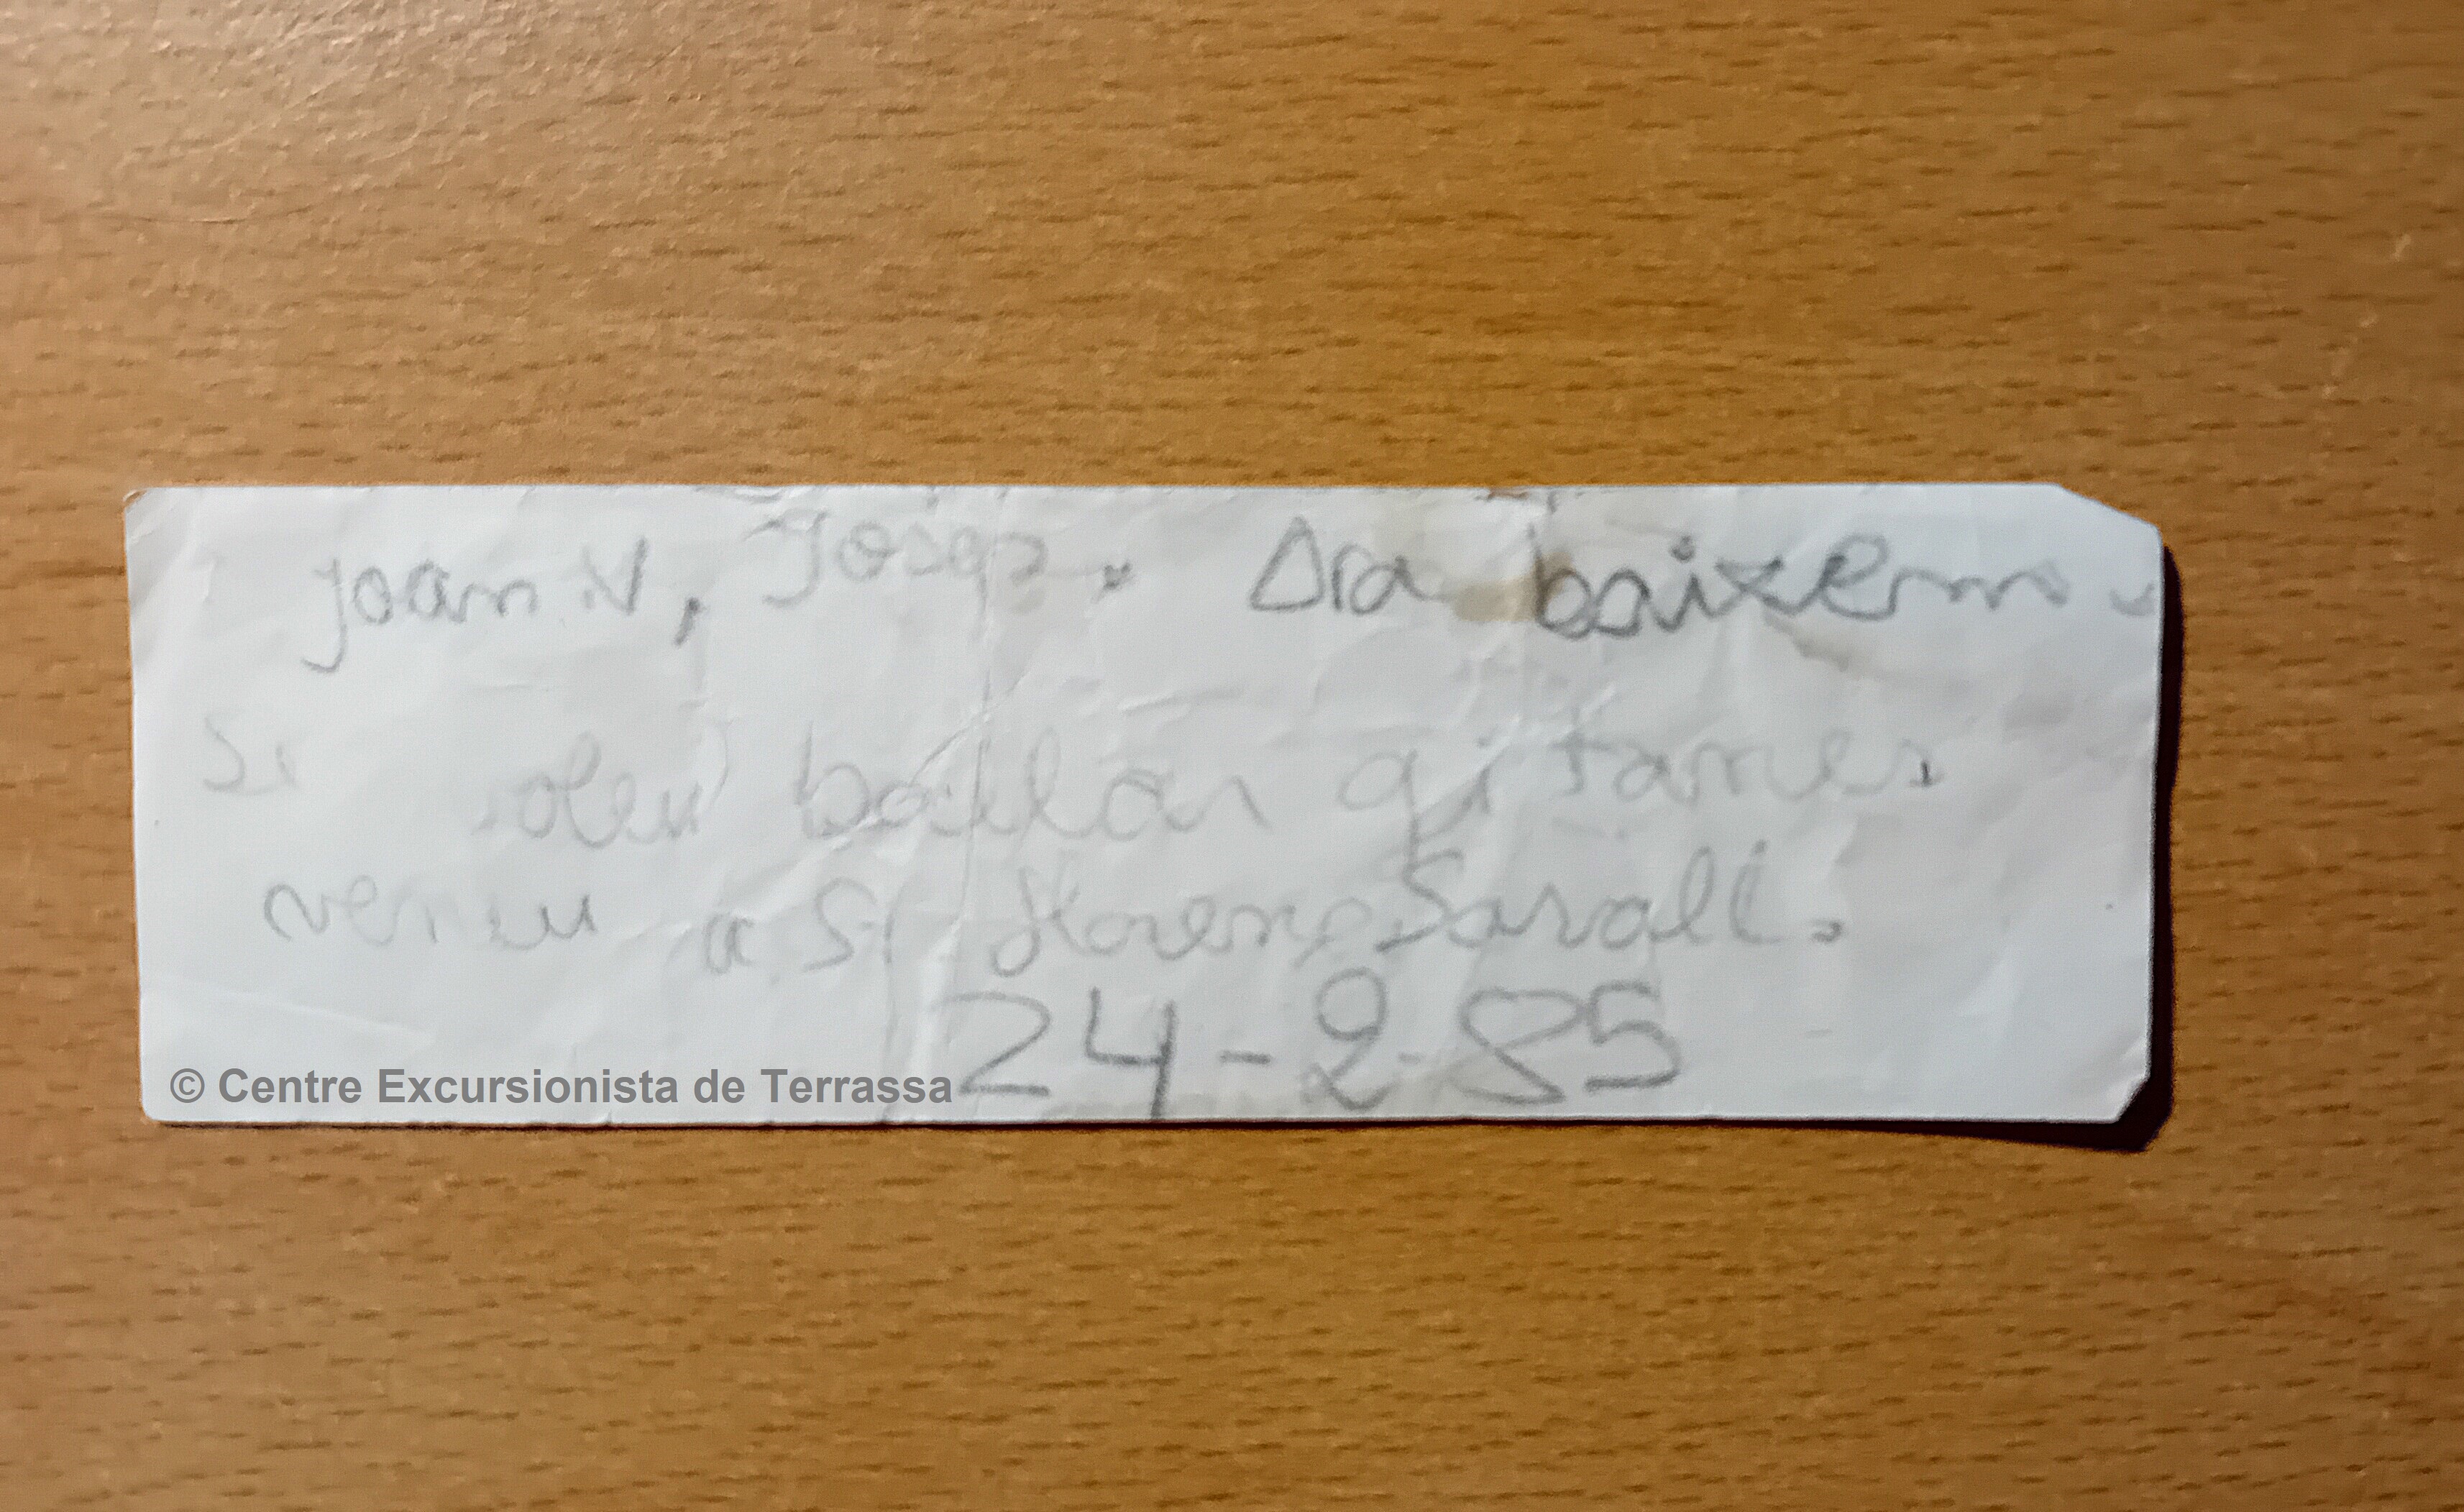 Joan V, Josep. Ara baixem.
Si voleu ballar gitanes.
veniu a St Llorenç Savall.
24-2-85
© Centre Excursionista de Terrassa